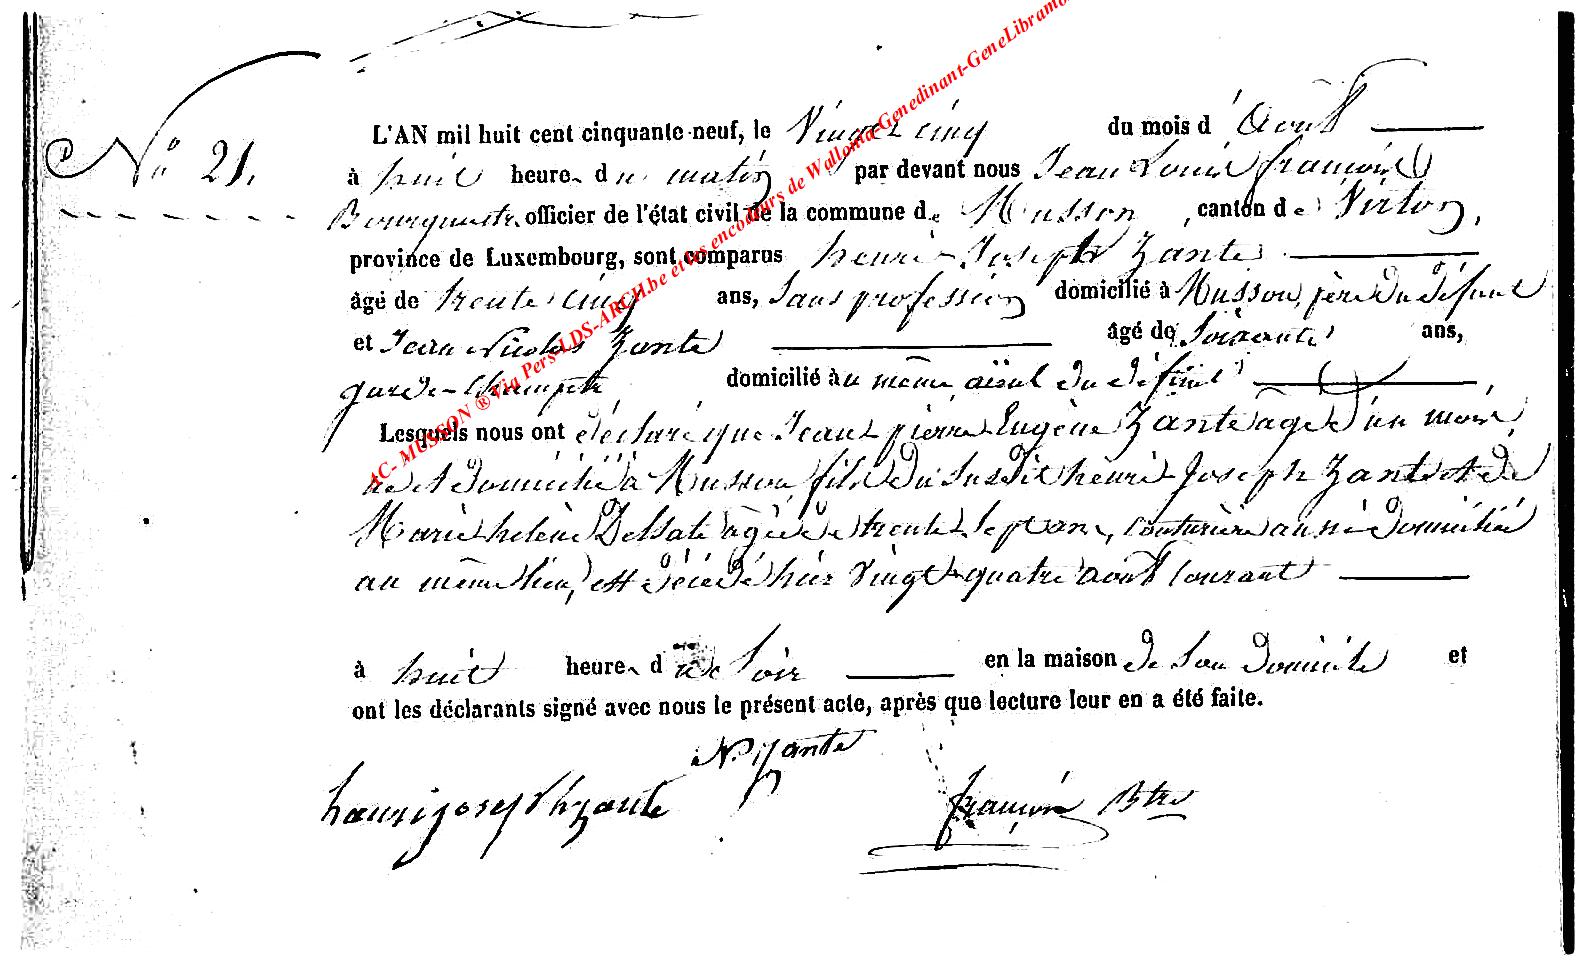 N° 21.
L'AN mil huit cent cinquante-neuf, le Vingt cinq du mois d'Août
à huit heures du matin par devant nous Jean Louis françois
Bourgmestre officier de l'état civil de la commune de Musson, canton de Virton,
province de Luxembourg, sont comparus henri-Joseph Zante
âgé de trente cinq ans, sans profession domicilié à Musson, père du défunt
et Jean Nicolas Zante âgé de soixante ans,
garde-Champêtre domicilié au même aieul du défunt
Lesquels nous ont déclaré que Jean pierre Eugène Zante âgé d'un mois
né et domicilié à Musson, fils du susdit henri Joseph Zante et de
Marie helène Delsate âgée de trente sept ans, couturière aussi domiciliée
au même lieu, est décédé hier vingt-quatre août courant
à huit heures du soir en la maison de son domicile et
ont les déclarants signé avec nous le présent acte, après que lecture leur en a été faite.
N. Zante
hanrijosephzante
françois Btre
AC- MUSSON ® Via Pers-LDS-ARCH.be et les encodeurs de Wallonia-Genedinant-GeneLibramo